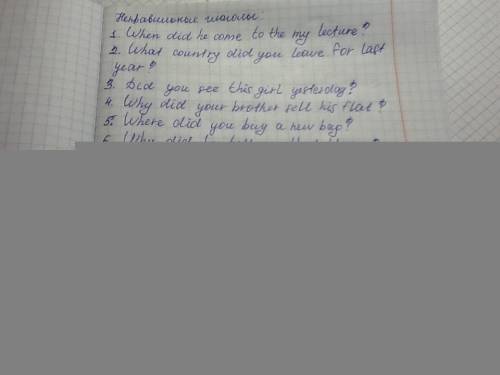 Неправильные глаголы.
1. When did he come to the my lecture?
2. What country did you leave for last
year?
3. Did you see this girl yesterday?
4. Why did your brother sell his flat?
5. Where did you buy a new bag?
6. Why did